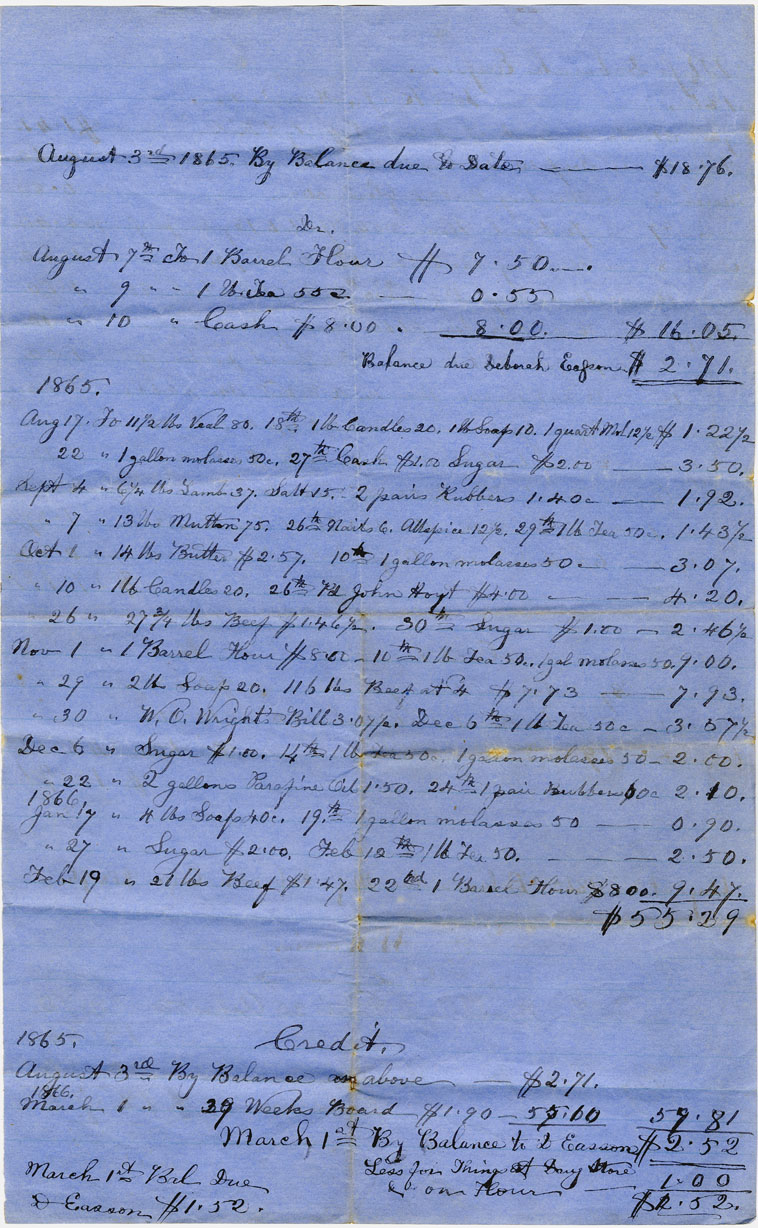 August 3rd 1865. By Balance due to Date — $18.76.
Dr.
August 7th To 1 Barrel Flour $ 7.50
" 9 " " 1 lb Tea 55c — 0.55
" 10 " Cash $8.00. — 8.00. $16.05.
Balance due Deborah Easson $2.71.
1865.
Aug 17. To 11 1/2 lbs Veal 80. 18th 1 lb Candles 20. 1 lb Soap 10. 1 quart Mol 12 1/2 $1.22 1/2
22 " 1 gallon molasses 50c. 27th Cash $1.00 Sugar $2.00 — 3.50.
Sept 4 " 6 1/4 lbs Lamb 37. Salt 15. 2 pairs Rubbers 1.40c — 1.92.
" 7 " 13 lbs Mutton 75. 26th Nails 6. Allspice 12 1/2. 29th 1 lb Tea 50c. 1.43 1/2
Oct 1 " 14 lbs Butter $2.57. 10th 1 gallon molasses 50c — 3.07.
" 10 " 1 lb Candles 20. 26th Pd John Hoyt $4.00 — 4.20.
" 26 " 27 3/4 lbs Beef $1.46 1/2. 30th Sugar $1.00 — 2.46 1/2
Nov 1 " 1 Barrel Flour $8.00 — 10th 1 lb Tea 50. 1 gal molasses 50. 9.00.
" 29 " 2 lb Soap 20. 116 lbs Beef at 4 $7.73 — 7.93.
" 30 " W. O. Wright's Bill 3.07 1/2. Dec 6th 1 lb Tea 50c — 3.57 1/2
Dec 6 " Sugar $1.00. 14th 1 lb Tea 50c. 1 gallon molasses 50 — 2.00.
" 22 " 2 gallons Parafine Oil 1.50. 24th 1 pair Rubbers 60c 2.10.
1866,
Jan 17 " 4 lbs Soap 40c. 19th 1 gallon molasses 50 — 0.90.
" 27 " Sugar $2.00. Feb 12th 1 lb Tea 50. — 2.50.
Feb 19 " 21 lbs Beef $1.47. 22nd 1 Barrel Flour $8.00. 9.47.
$55.29
1865. Credit.
August 3rd By Balance as above — $2.71.
1866.
March 1 " " 29 Weeks Board $1.90 — 55.10 57.81
March 1st By Balance to D Easson $2.52
Less for Things at Day Store
& on Flour — 1.00
$1.52.
March 1st Bal Due
D Easson $1.52.